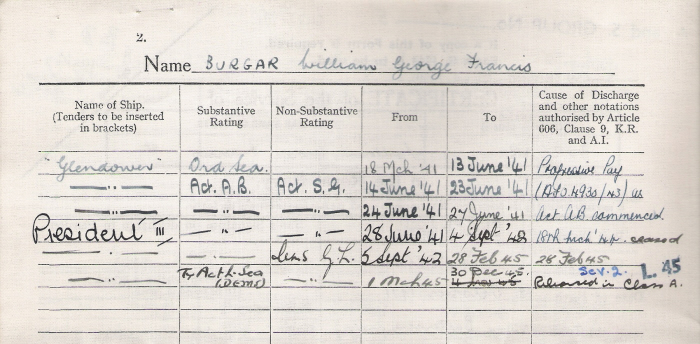 2.
Name BURGAR William George Francis
Name of Ship. (Tenders to be inserted in brackets) Substantive Rating Non-Substantive Rating From To Cause of Discharge and other notations authorised by Article 606, Clause 9, K.R. and A.I.
"Glendower" Ord Sea. 18 Mch '41 13 June '41 Progressive Pay
— " — Act. A.B. Act. S.G. 14 June '41 23 June '41 (AFO 4930/43) as
— " — — " — — " — 24 June '41 27 June '41 Act AB commenced
President III — " — — " — 28 June '41 4 Sept '42 18th Mch '42. ceased
— " — — " — G.L. 5 Sept '42 28 Feb 45 28 Feb 45
— " — Ty Act L. Sea (DEMS) — " — 1 Mch 45 30 Dec 45. Released in Class A.
L. 45